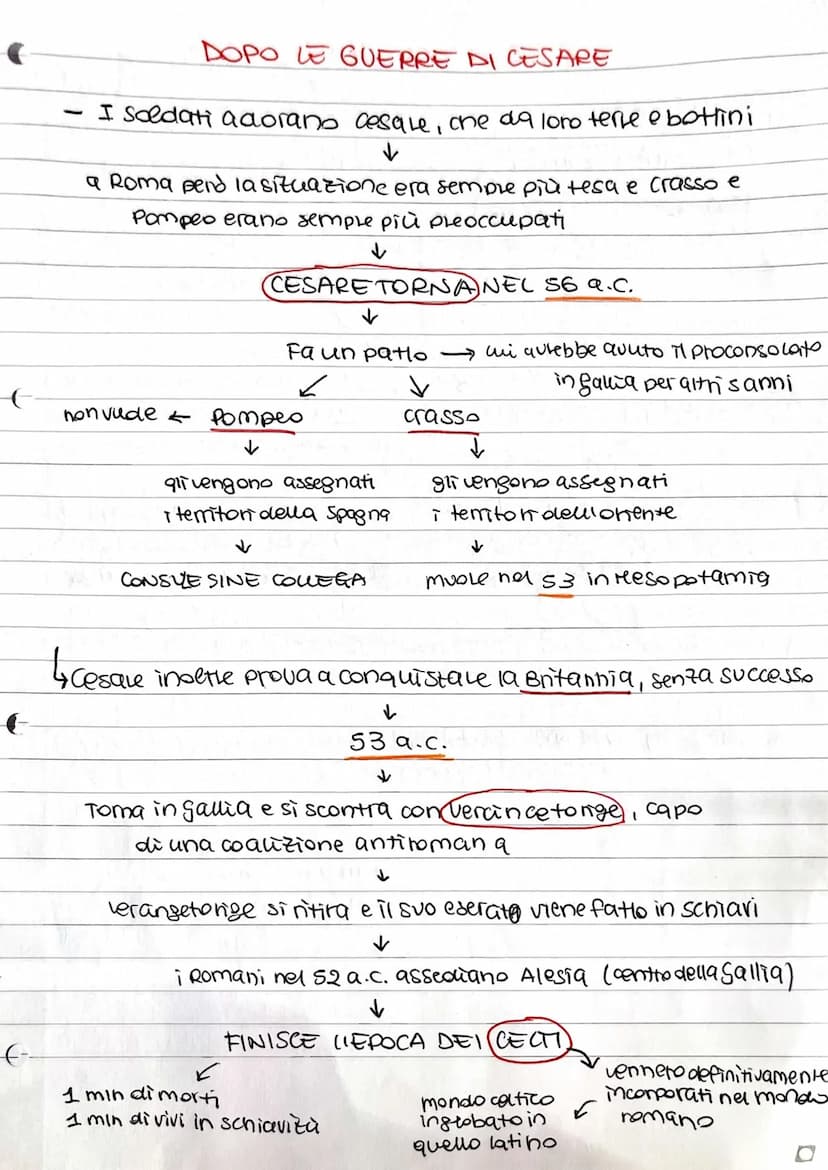 DOPO LE GUERRE DI CESARE
- I soldati adorano Cesare, che da loro terre e bottini
↓
a Roma però la situazione era sempre più tesa e Crasso e
Pompeo erano sempre più preoccupati
↓
CESARE TORNA NEL 56 a.C.
↓
Fa un patto → lui avrebbe avuto il proconsolato
in Gallia per altri 5 anni
↙ ↓
non vuole ← Pompeo
Crasso
↓ ↓
gli vengono assegnati
i territori della Spagna
↓
CONSULE SINE COLLEGA
gli vengono assegnati
i territori dell'oriente
↓
muore nel 53 in Mesopotamia
↳ Cesare inoltre prova a conquistare la Britannia, senza successo
↓
53 a.C.
↓
Torna in Gallia e si scontra con Vercincetorige, capo
di una coalizione antiromana
↓
Verangetorige si ritira e il suo esercito viene fatto in schiavi
↓
i Romani nel 52 a.C. assediano Alesia (centro della Gallia)
↓
FINISCE L'EPOCA DEI CELTI
↙ ↘
1 mln di morti
1 mln di vivi in schiavità
vennero definitivamente
incorporati nel mondo
romano
↙
mondo celtico
inglobato in
quello latino